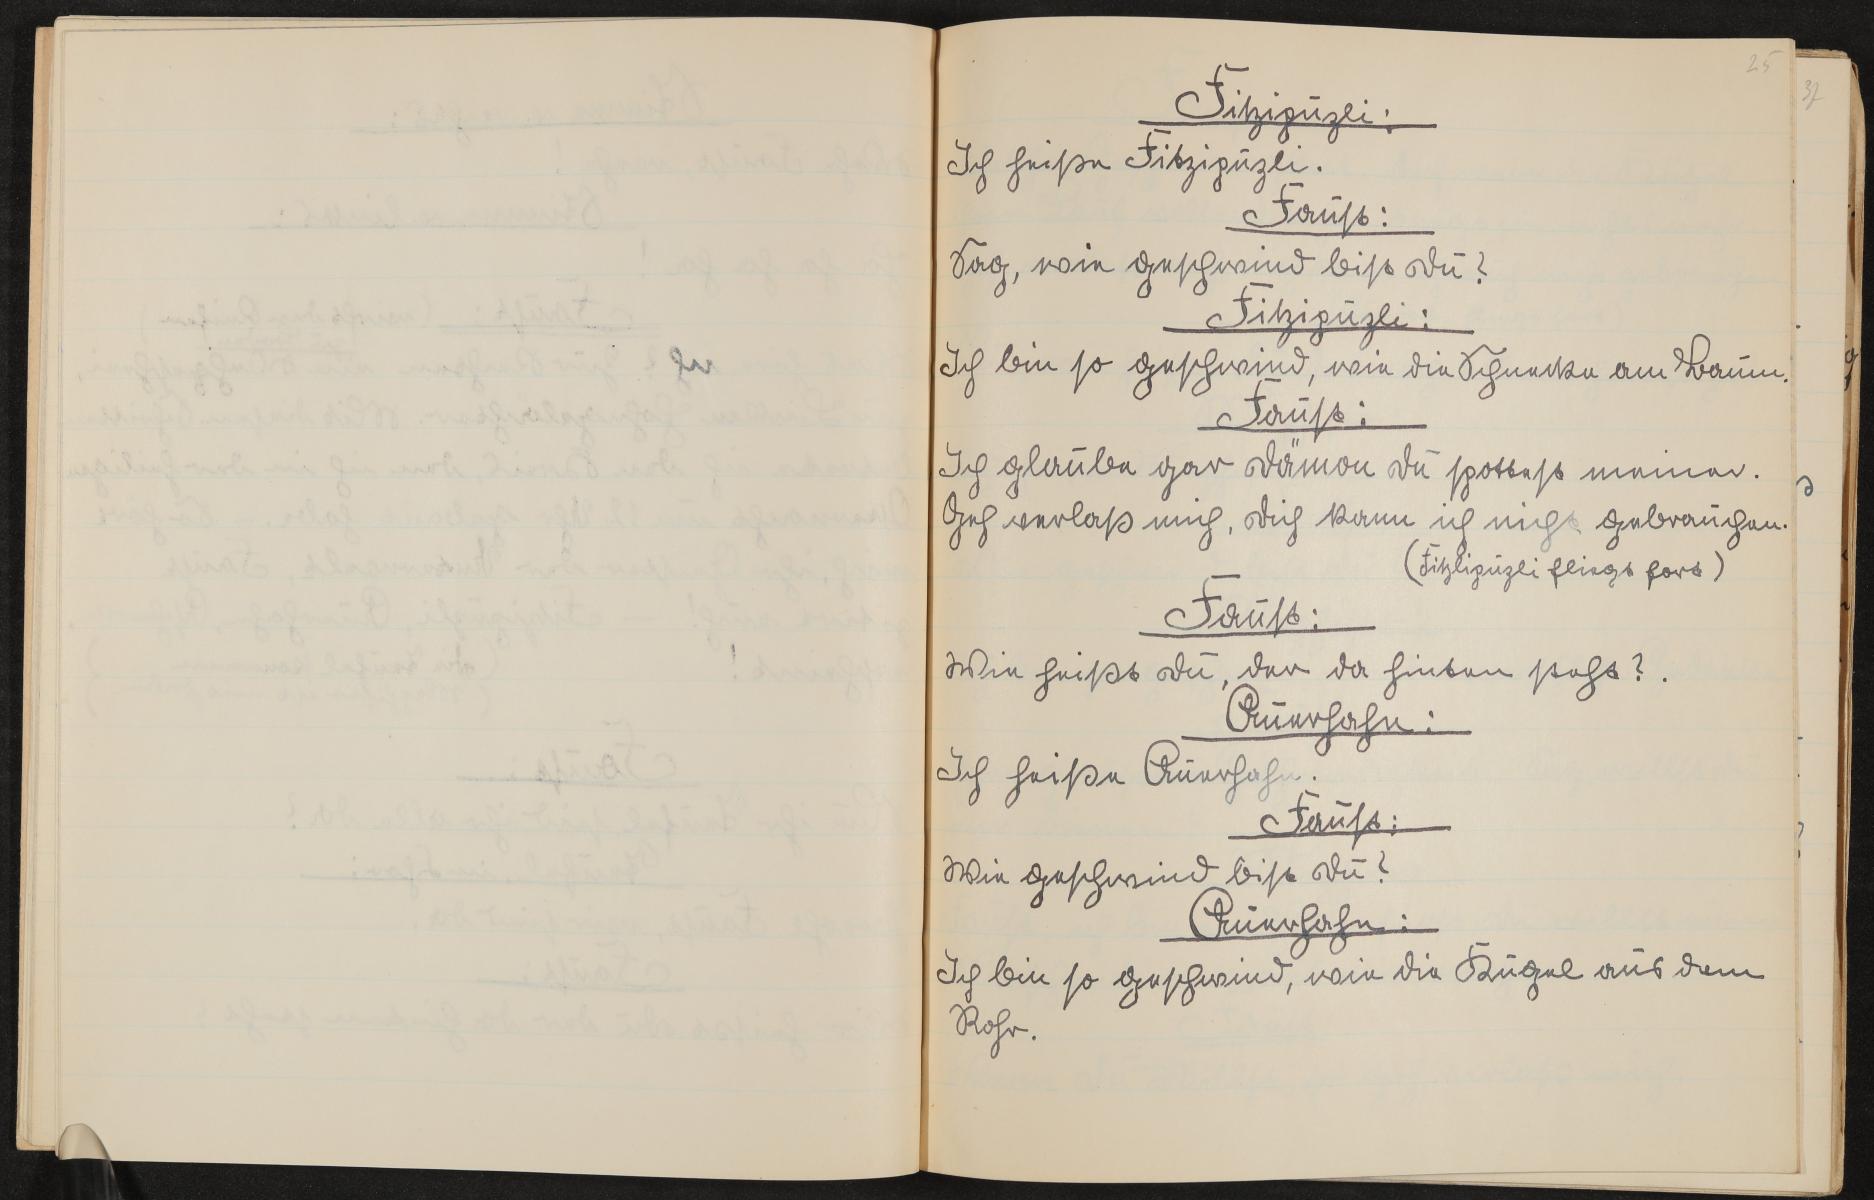 25
37
Fitzipuzli:
Ich heiße Fitzipuzli.
Faust:
Sag, wie geschwind bist du?
Fitzipuzli:
Ich bin so geschwind, wie die Schnecke am Baum.
Faust:
Ich glaube gar Dämon du spottest meiner.
Geh verlaß mich, dich kann ich nicht gebrauchen.
(Fitzlipuzli fliegt fort)
Faust:
Wie heißt du, der da hinten steht?.
Auerhahn:
Ich heiße Auerhahn.
Faust:
Wie geschwind bist du?
Auerhahn:
Ich bin so geschwind, wie die Kugel aus dem
Rohr.